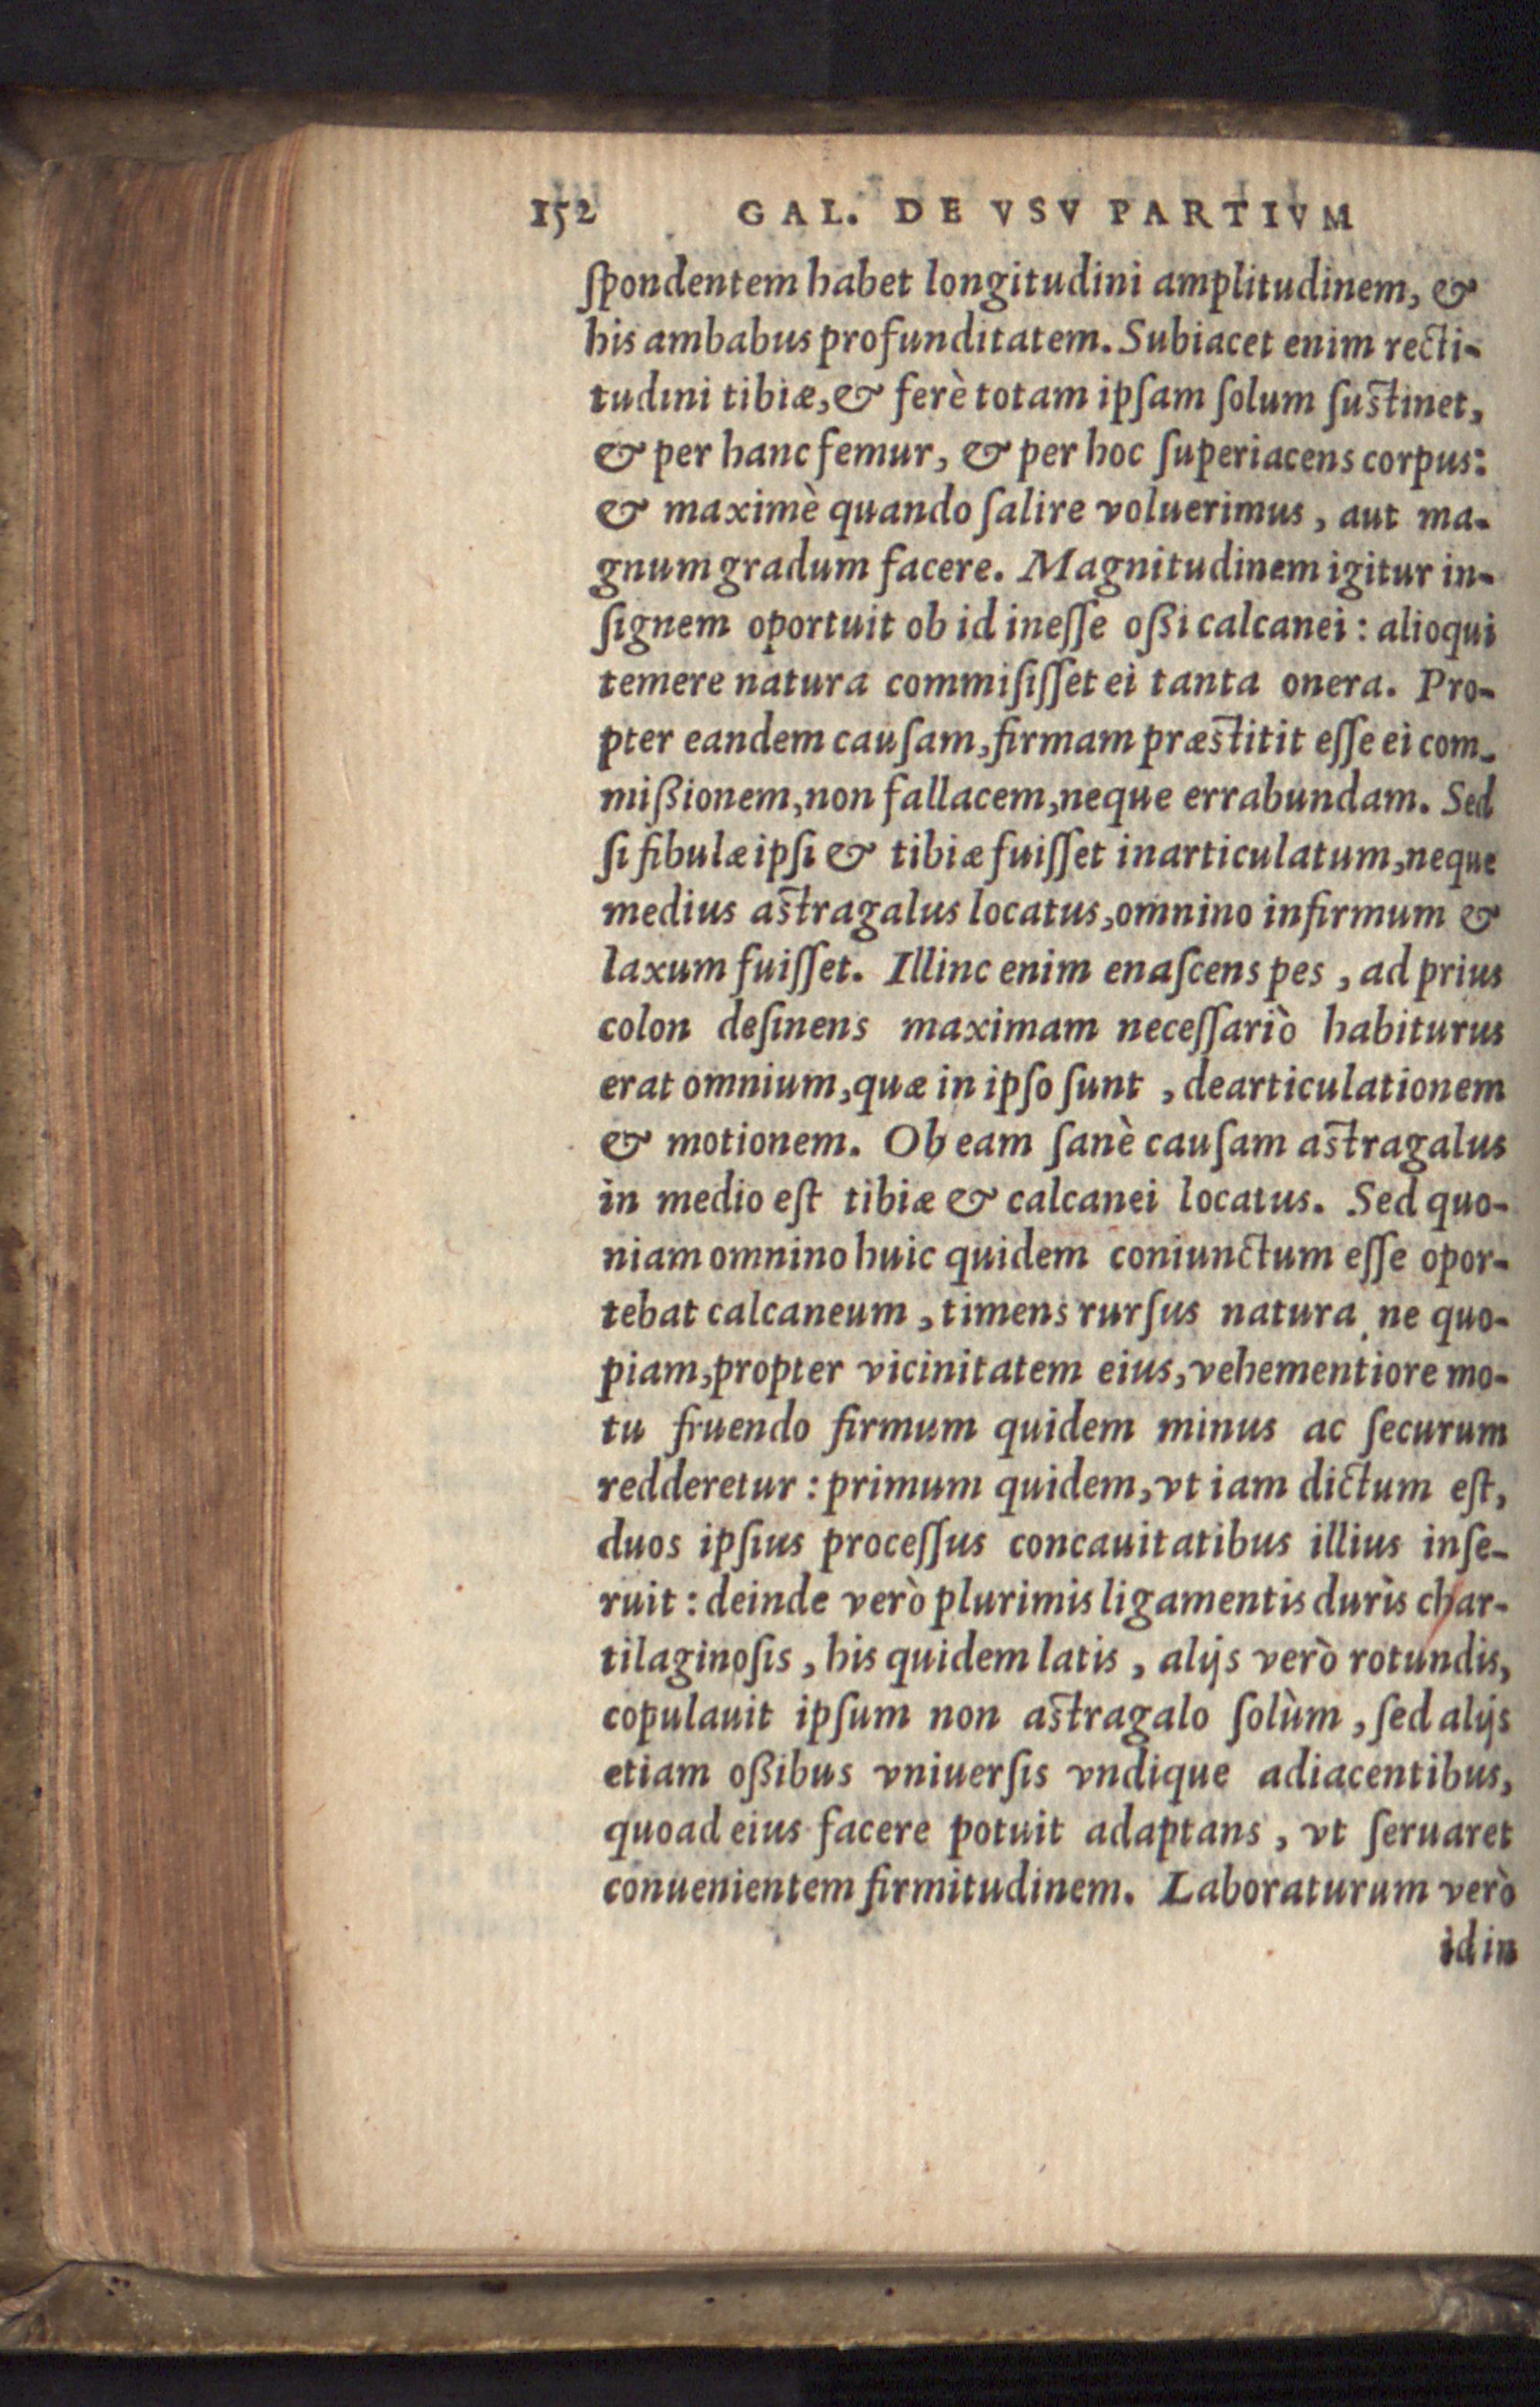 152 GAL. DE VSV PARTIVM
ſpondentem habet longitudini amplitudinem, &
his ambabus profunditatem. Subiacet enim recti-
tudini tibiæ, & ferè totam ipſam ſolum ſuſtinet,
& per hanc femur, & per hoc ſuperiacens corpus:
& maximè quando ſalire voluerimus, aut ma-
gnum gradum facere. Magnitudinem igitur in-
ſignem oportuit ob id ineſſe oßi calcanei: alioqui
temere natura commiſiſſet ei tanta onera. Pro-
pter eandem cauſam, firmam præſtitit eſſe ei com-
mißionem, non fallacem, neque errabundam. Sed
ſi fibulæ ipſi & tibiæ fuiſſet inarticulatum, neque
medius aſtragalus locatus, omnino infirmum &
laxum fuiſſet. Illinc enim enaſcens pes, ad prius
colon deſinens maximam neceſſariò habiturus
erat omnium, quæ in ipſo ſunt, dearticulationem
& motionem. Ob eam ſanè cauſam aſtragalus
in medio eſt tibiæ & calcanei locatus. Sed quo-
niam omnino huic quidem coniunctum eſſe opor-
tebat calcaneum, timens rurſus natura ne quo-
piam, propter vicinitatem eius, vehementiore mo-
tu fruendo firmum quidem minus ac ſecurum
redderetur: primum quidem, vt iam dictum eſt,
duos ipſius proceſſus concauitatibus illius inſe-
ruit: deinde verò plurimis ligamentis duris char-
tilaginoſis, his quidem latis, alijs verò rotundis,
copulauit ipſum non aſtragalo ſolùm, ſed alijs
etiam oßibus vniuerſis vndique adiacentibus,
quoad eius facere potuit adaptans, vt ſeruaret
conuenientem firmitudinem. Laboraturum verò
id in